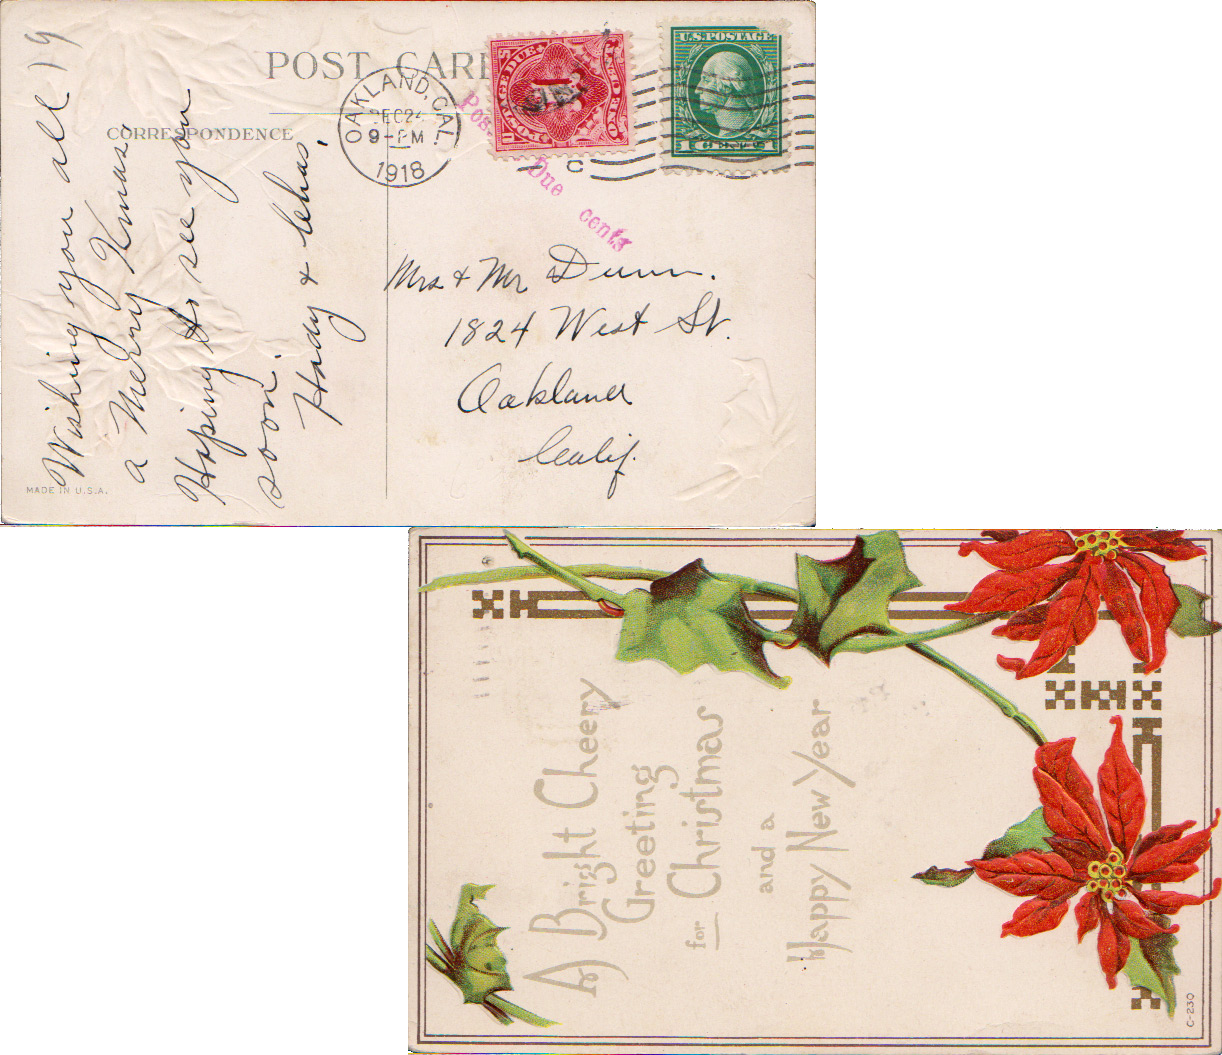 POST CARD
CORRESPONDENCE
OAKLAND, CAL.
DEC 24
9-PM
1918
POSTAGE DUE
U.S. POSTAGE
Due cents
Wishing you all
a Merry Xmas.
Hoping to see you
soon.
& Chas.
Mrs & Mr Dunn.
1824 West St.
Oakland
Calif.
MADE IN U.S.A.
A Bright Cheery
Greeting
for Christmas
and a
Happy New Year
C-230